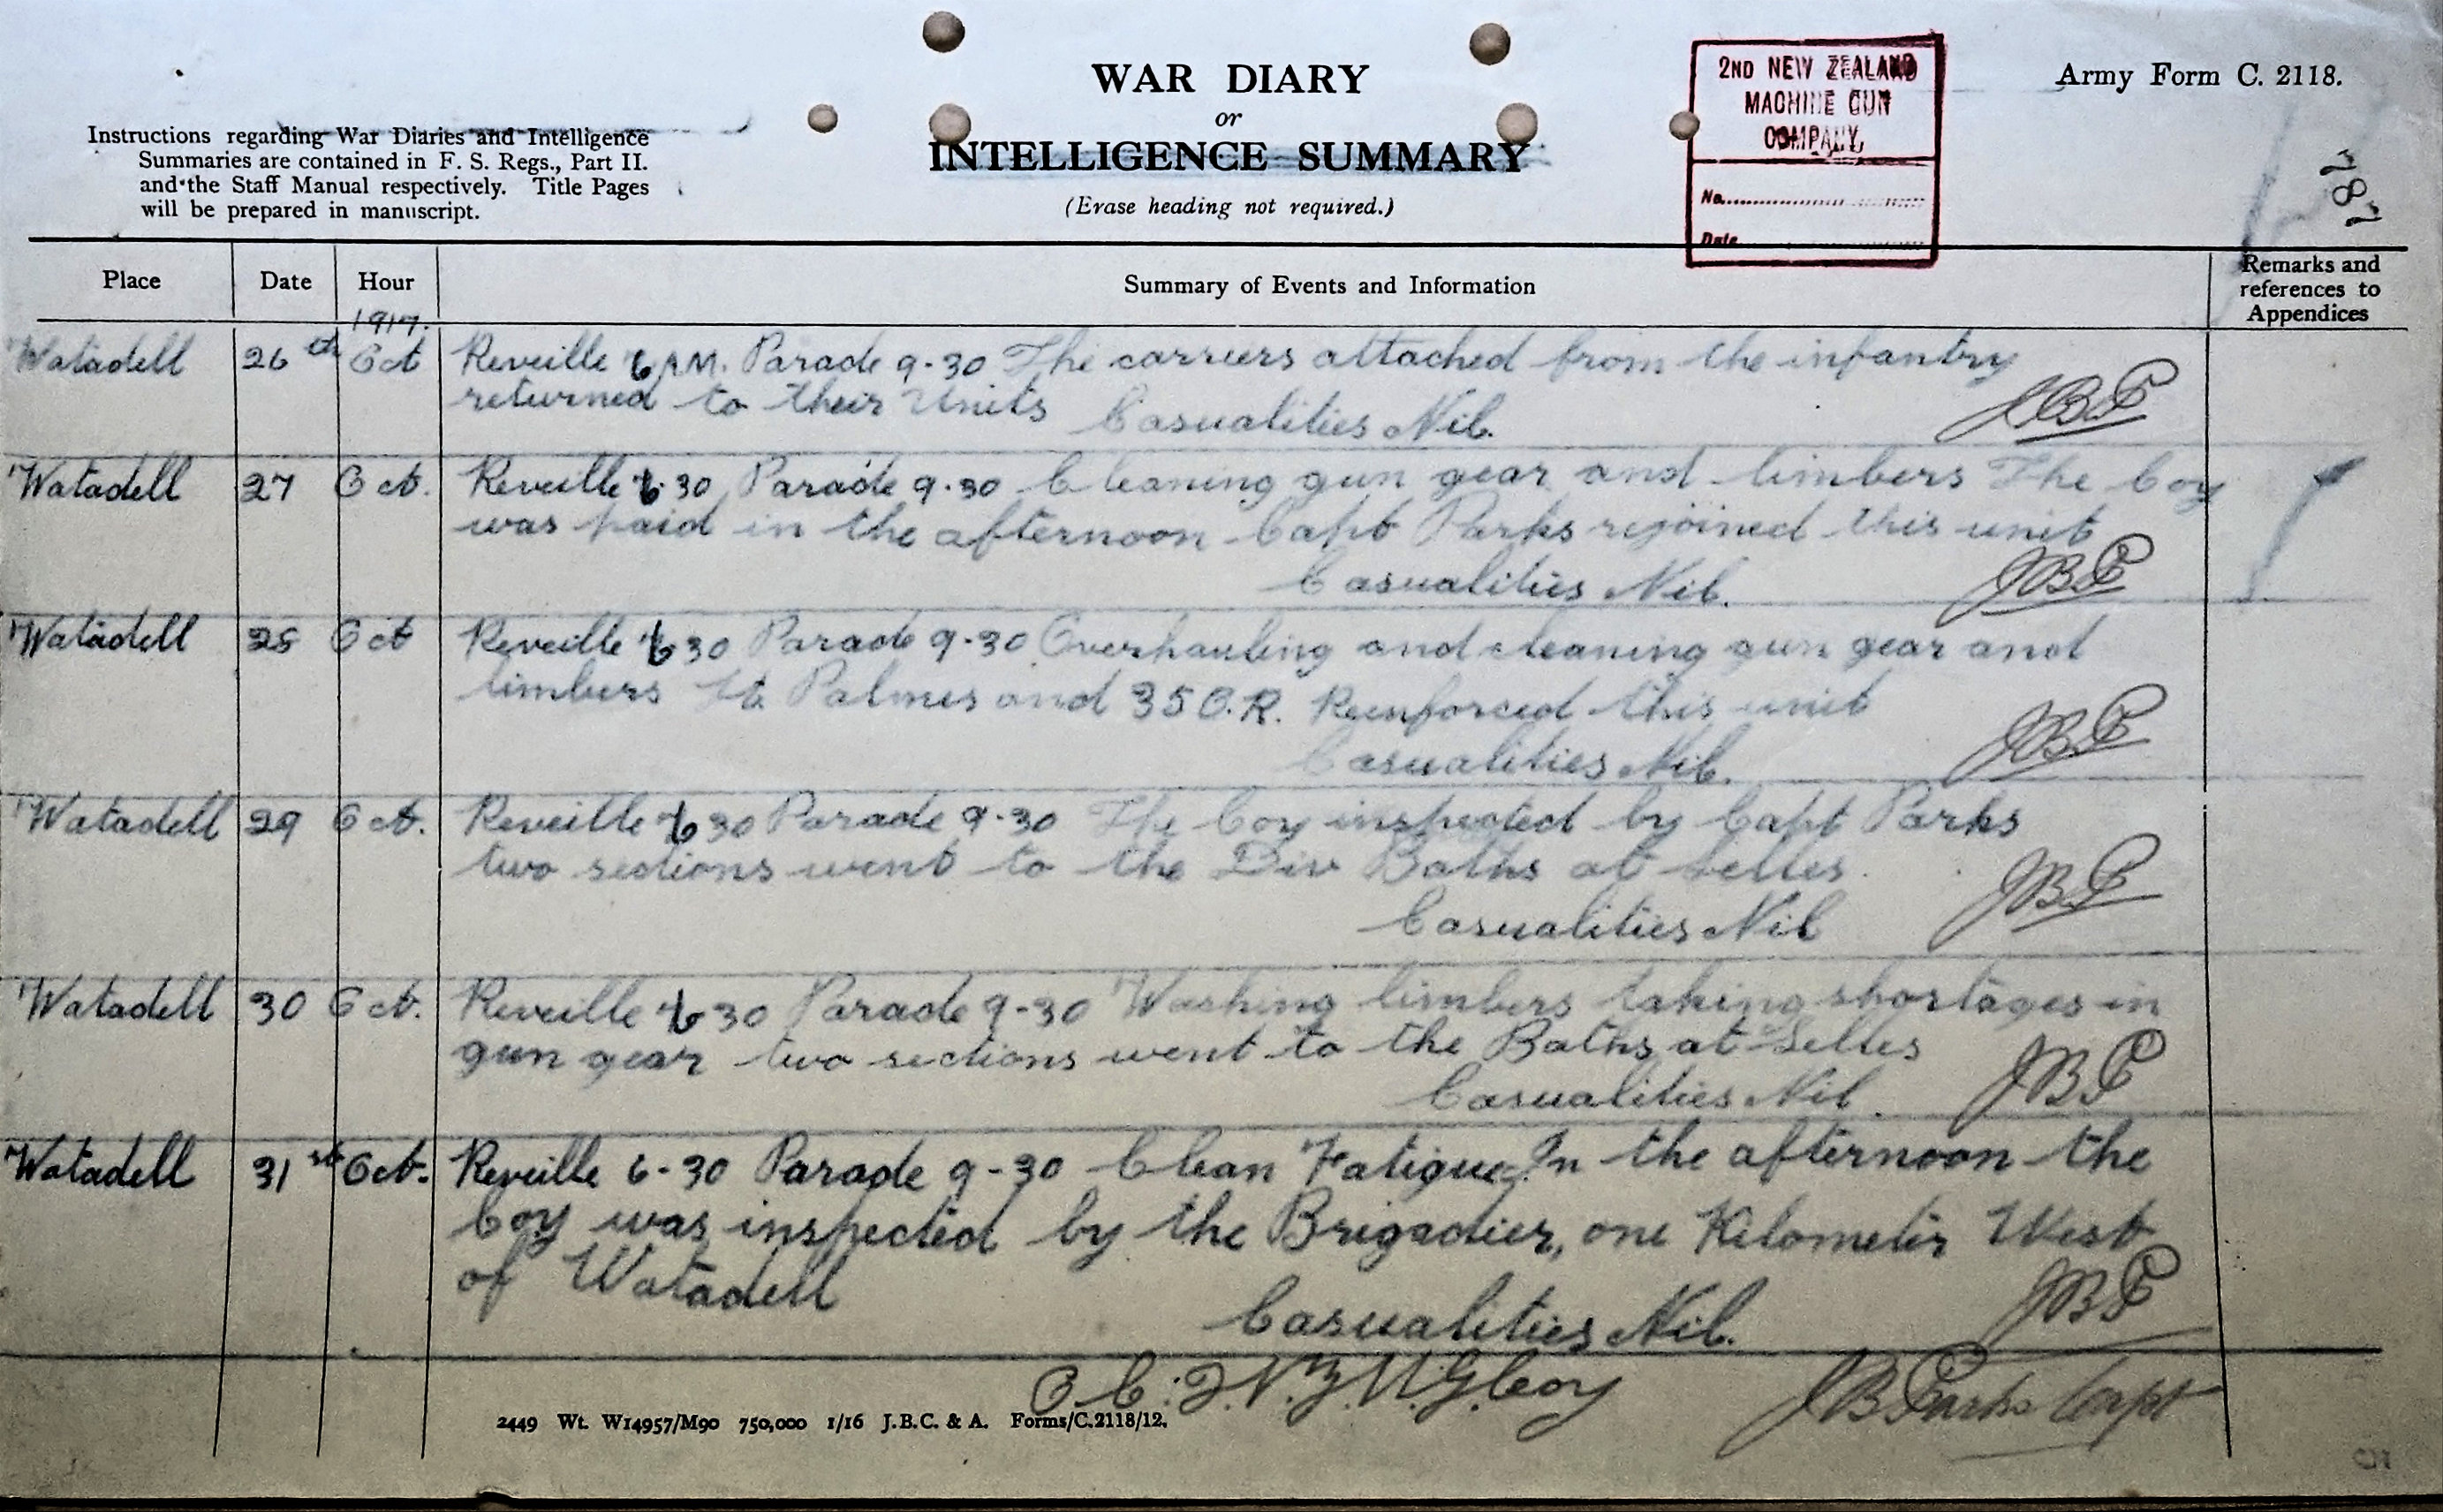 WAR DIARY
or
INTELLIGENCE SUMMARY
(Erase heading not required.)
Instructions regarding War Diaries and Intelligence
Summaries are contained in F. S. Regs., Part II.
and the Staff Manual respectively. Title Pages
will be prepared in manuscript.
2ND NEW ZEALAND
MACHINE GUN
COMPANY.
No.
Date
Army Form C. 2118.
187
Place Date Hour Summary of Events and Information Remarks and
references to
Appendices
1917.
Watadell 26th Oct Reveille 6 AM. Parade 9-30 The carriers attached from the infantry
returned to their Units Casualities Nil. JBP
Watadell 27 Oct. Reveille 6.30 Parade 9.30 Cleaning gun gear and limbers The Coy
was paid in the afternoon Capt Parks rejoined this unit
Casualities Nil. JBP
Watadell 28 Oct Reveille 6 30 Parade 9-30 Overhauling and cleaning gun gear and
limbers Lt. Palmes and 35 O.R. Reinforced this unit
Casualities Nil. JBP
Watadell 29 Oct. Reveille 6 30 Parade 9-30 The Coy inspected by Capt Parks
two sections went to the Div Baths at Selles.
Casualities Nil JBP
Watadell 30 Oct. Reveille 6 30 Parade 9-30 Washing limbers taking shortages in
gun gear two sections went to the Baths at Selles
Casualities Nil. JBP
Watadell 31st Oct. Reveille 6-30 Parade 9-30 Clean Fatigue. In the afternoon the
Coy was inspected by the Brigadier, one Kilometer West
of Watadell
Casualities Nil. JBP
O.C. 2 N.Z.M.G. Coy JB Parks Capt
2449 Wt. W14957/M90 750,000 1/16 J.B.C. & A. Forms/C.2118/12.